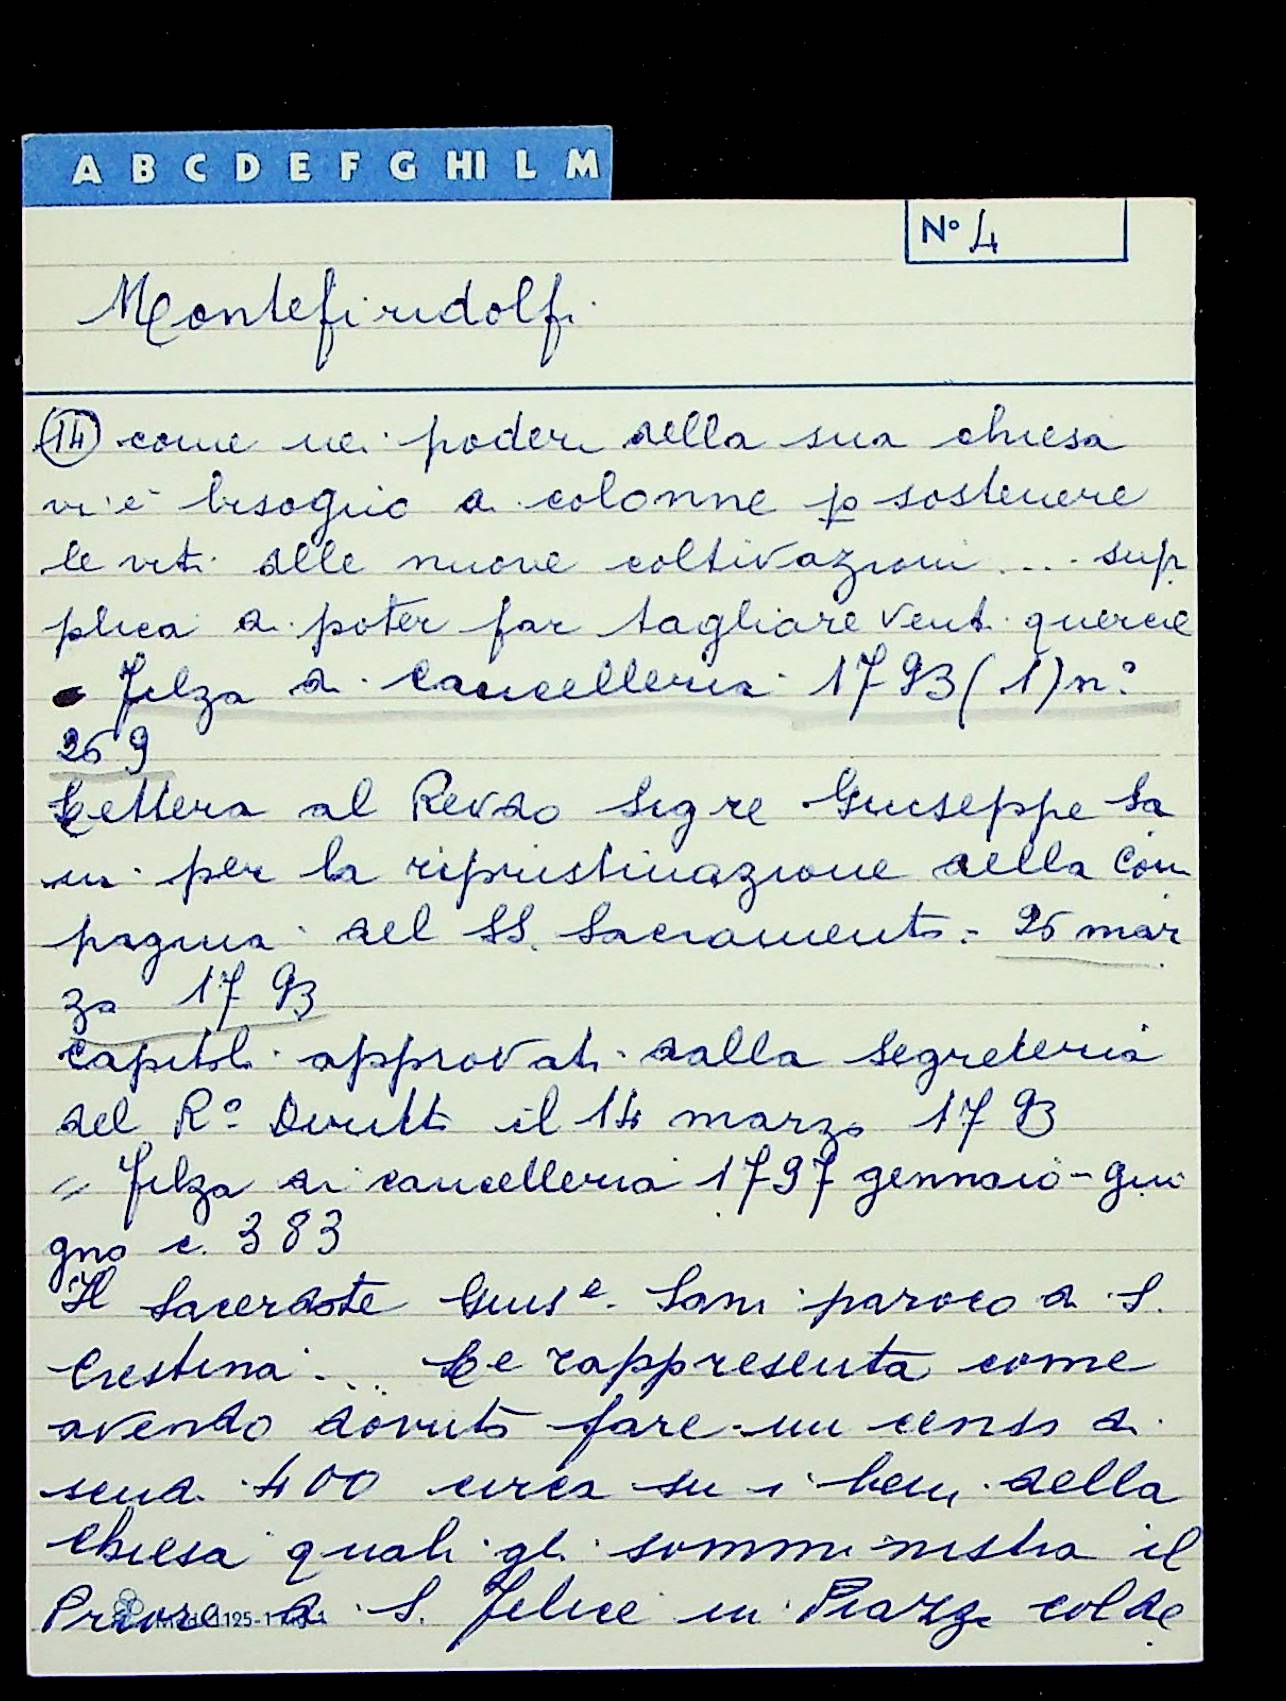 A B C D E F G HI L M
N° 4
Montefiridolfi
14 come nei poderi della sua chiesa
vi è bisogno di colonne p sostenere
le viti delle nuove coltivazioni .... sup
plica di poter far tagliare venti quercie
Filza di Cancelleria 1793 (1) n°
269
Lettera al Revdo Sigre Giuseppe Sa
ni per la ripristinazione della Com
pagnia del SS. Sacramento = 26 mar
zo 1793
Capitoli approvati dalla Segreteria
del R° Diritto il 14 marzo 1793
= Filza di cancelleria 1797 gennaio - giu
gno c. 383
Il Sacerdote Giuse. Sani paroco di S.
Crestina .... Le rappresenta come
avendo dovuto fare un censo di
scudi 400 circa su i beni della
Chiesa quali gli somministra il
Priore di S. Felice in Piazza col de